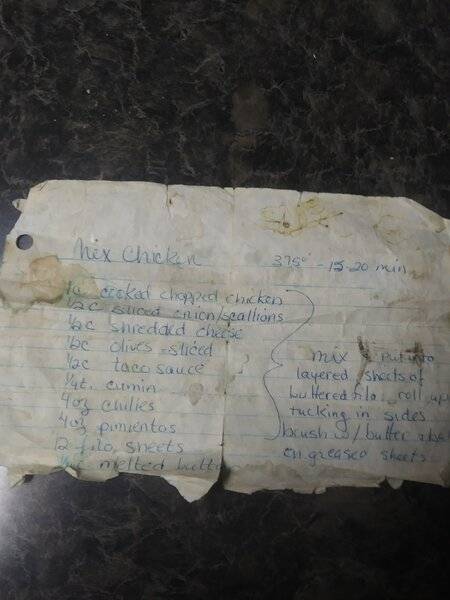 Mex Chicken
375° - 15-20 min
cooked chopped chicken
1/2 c sliced onion/scallions
1/2 c shredded cheese
1/2 c olives - sliced
1/2 c taco sauce
1/4 t. cumin
4 oz chilies
4 oz pimientos
12 filo sheets
melted butt
mix & put into
layered sheets of
buttered filo. roll up
tucking in sides
brush w/ butter
on greased sheets